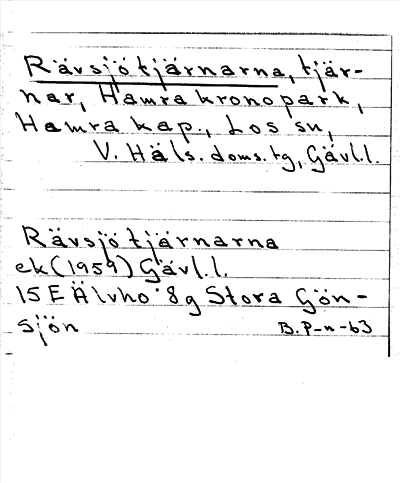 Rävsjötjärnarna, tjär-
nar, Hamra kronopark,
Hamra kap., Los sn,
V. Häls. doms. tg, Gävl.l.
Rävsjötjärnarna
ek (1959) Gävl.l.
15 E Älvho 8g Stora Gön-
sjön B.P-n-63